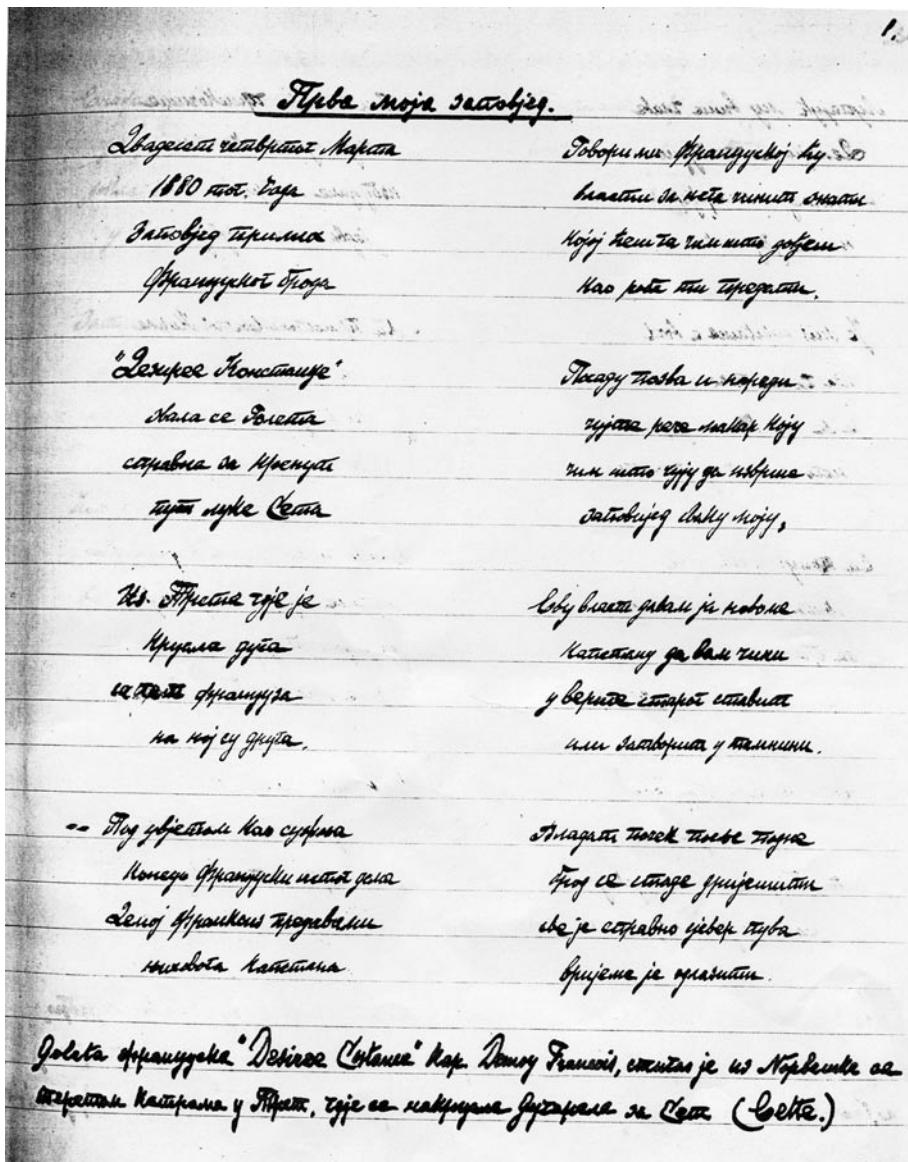 1
Прва моја заповјед.
Двадесет четвртог Марта
1880 тог. Года
Заповјед примих
Француског брода
"Дезирее Констанце"
Звала се Голета
справна за кренути
пут луке Сета
Из Трста гдје је
Крцала дуга
са пет француза
на ној су друга.
Под увјетом као сухиња
Конзуо Француски истог дана
Демој Франкоис предавами
њиховога Капетана
Говорими Француској ћу
власти за нета чинит знати
којој ћеш га чим што дођем
као робе ти предати.
Посаду позва и нареди
чујте рече макар коју
чим што чују да изврше
заповијед сваку моју,
Сву власт давам ја новоме
Капетану да вам чини
у вериге старог ставит
или затворит у тамнини.
Владат почек после подне
брод се стаде дријешити
све је справно сјевер пува
вријеме је одлазити.
Goleta француска "Desiree Costance" Кар. Demoy Francois, стигао је из Норвешка са
теретом Катрама у Трст, гдје се накрцала Дугарела за Сет (Cette.)